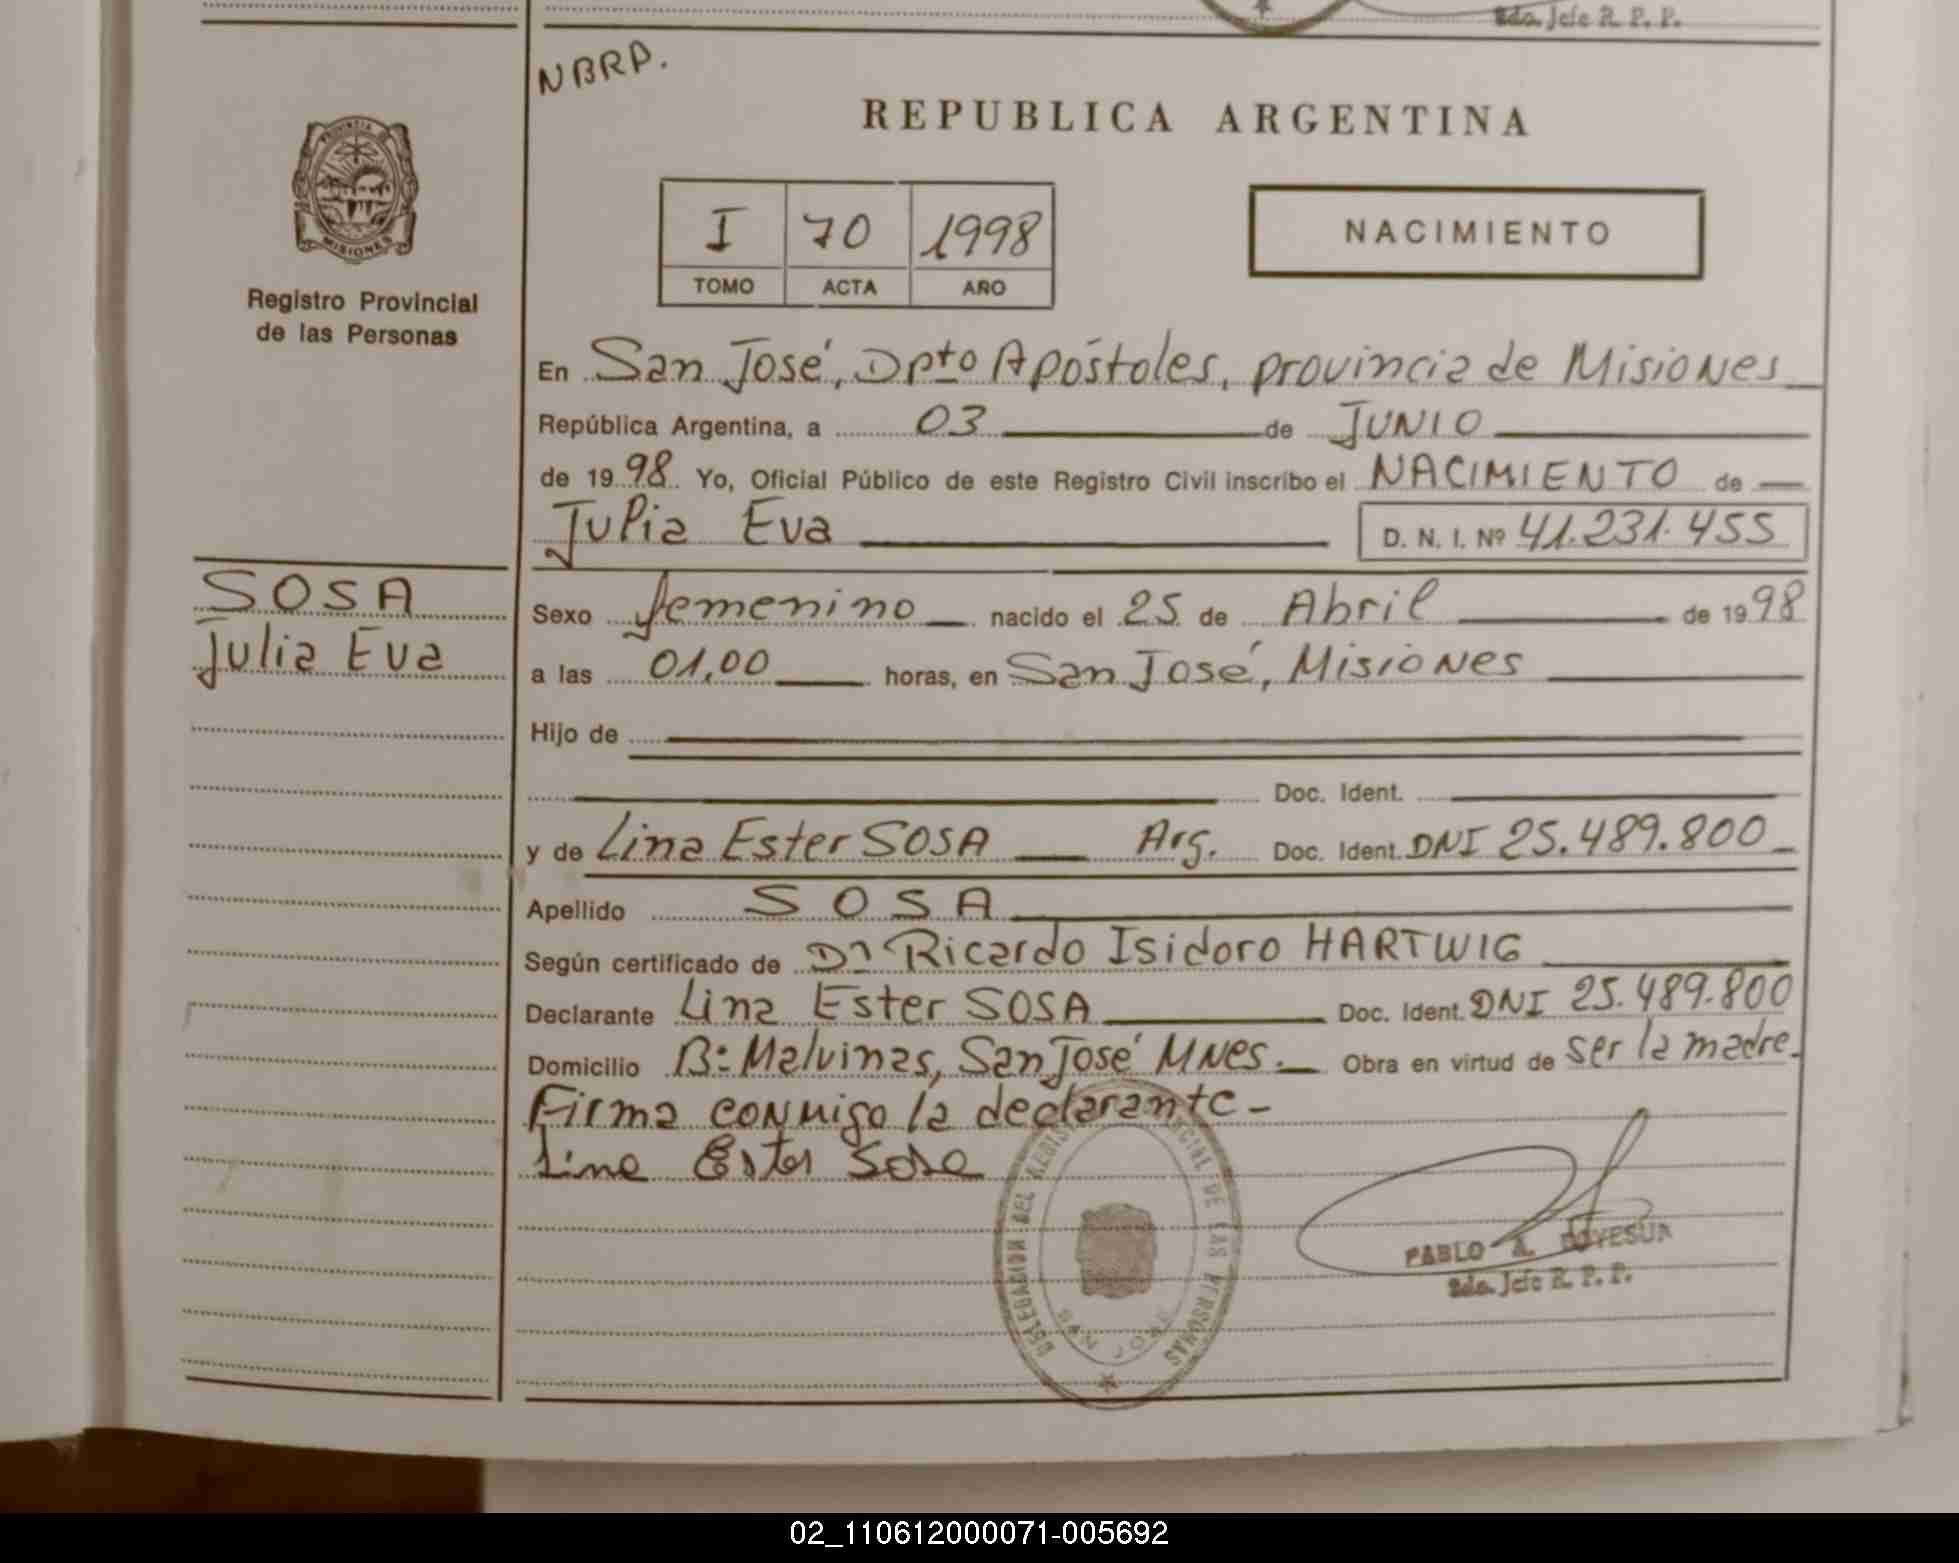 2do. Jefe R. P. P.
NBRP.
REPUBLICA ARGENTINA
PROVINCIA DE
MISIONES
Registro Provincial
de las Personas
I 70 1998
TOMO ACTA AÑO
NACIMIENTO
En San José, Dpto Apóstoles, provincia de Misiones
República Argentina, a 03 de JUNIO
de 1998 Yo, Oficial Público de este Registro Civil inscribo el NACIMIENTO de
Julia Eva D. N. I. Nº 41.231.455
SOSA
Julia Eva
Sexo femenino nacido el 25 de Abril de 1998
a las 01,00 horas, en San José, Misiones
Hijo de
Doc. Ident.
y de Lina Ester SOSA Arg. Doc. Ident. DNI 25.489.800
Apellido SOSA
Según certificado de Dr Ricardo Isidoro HARTWIG
Declarante Lina Ester SOSA Doc. Ident. DNI 25.489.800
Domicilio Bº Malvinas, San José Mnes. Obra en virtud de ser la madre.
Firma conmigo la declarante-
Lina Ester Sosa
DELEGACION DEL REGISTRO PROVINCIAL DE LAS PERSONAS
SAN JOSE
PABLO A.
2do. Jefe R. P. P.
02_110612000071-005692